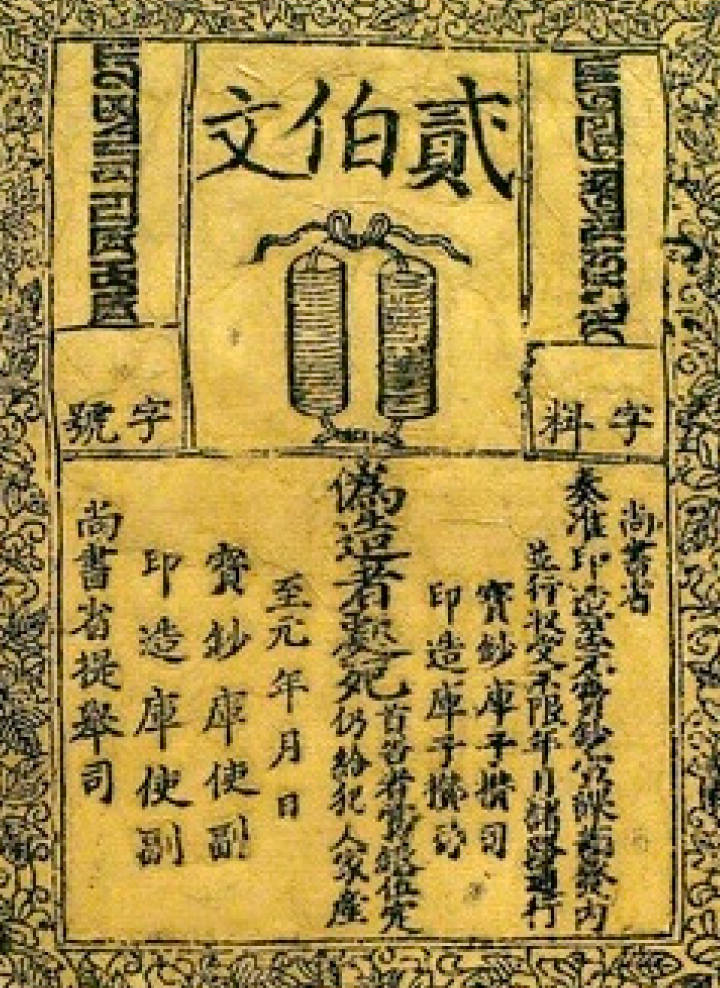 貳伯文
字料
字號
尚書省
奏准印造至元寶鈔宣課差發內
並行收受不限年月諸路通行
寶鈔庫子攢司
印造庫子攢司
偽造者處死
首告者賞銀伍定
仍給犯人家產
至元年月日
寶鈔庫使副
印造庫使副
尚書省提舉司